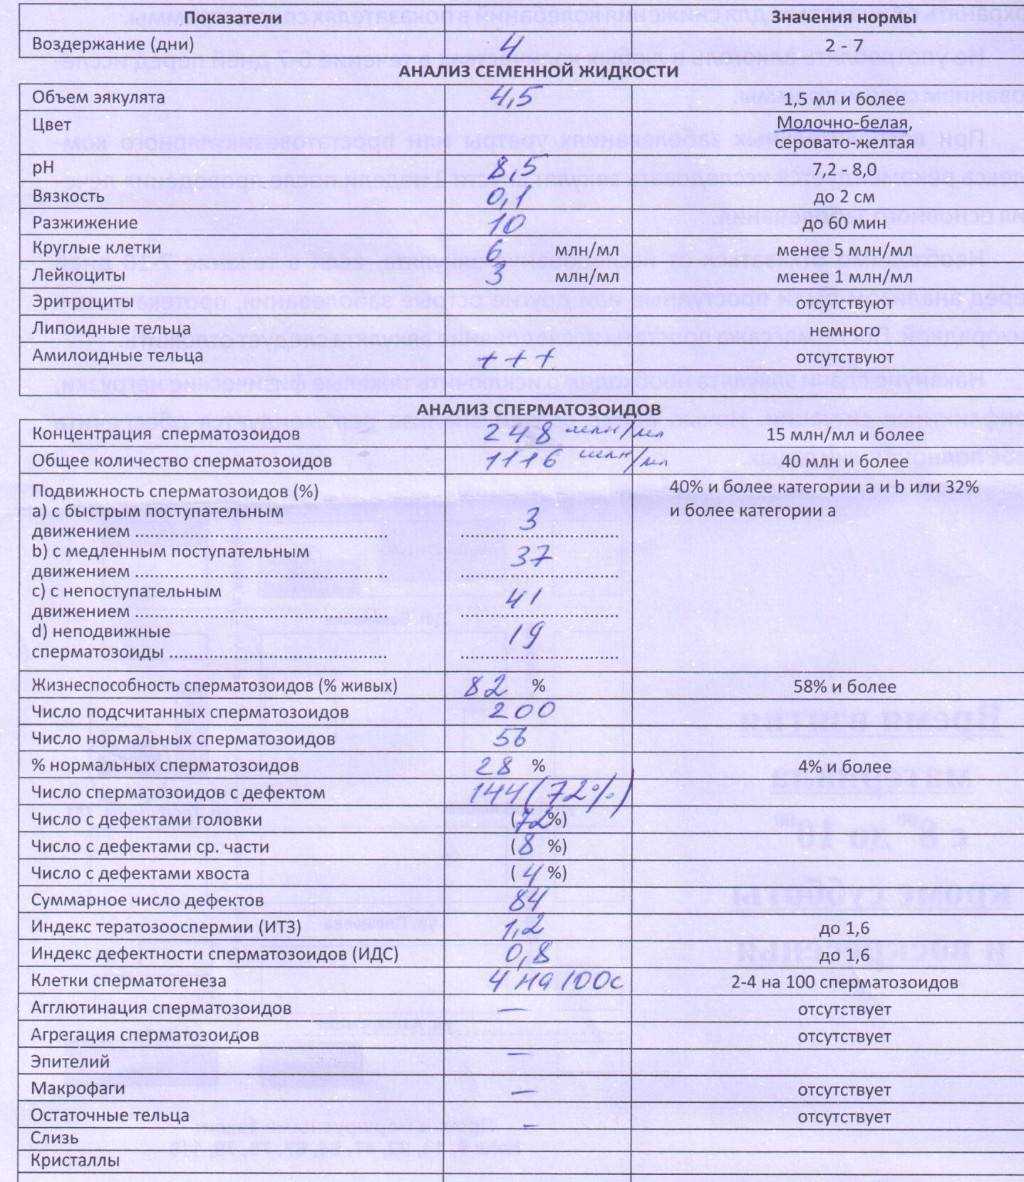 Показатели Значения нормы
Воздержание (дни) 4 2 - 7
АНАЛИЗ СЕМЕННОЙ ЖИДКОСТИ
Объем эякулята 4,5 1,5 мл и более
Цвет Молочно-белая,
серовато-желтая
pH 8,5 7,2 - 8,0
Вязкость 0,1 до 2 см
Разжижение 10 до 60 мин
Круглые клетки 6 млн/мл менее 5 млн/мл
Лейкоциты 3 млн/мл менее 1 млн/мл
Эритроциты отсутствуют
Липоидные тельца немного
Амилоидные тельца +++ отсутствуют
АНАЛИЗ СПЕРМАТОЗОИДОВ
Концентрация сперматозоидов 248 млн/мл 15 млн/мл и более
Общее количество сперматозоидов 1116 млн/мл 40 млн и более
Подвижность сперматозоидов (%) 40% и более категории a и b или 32%
a) с быстрым поступательным и более категории a
движением 3
b) с медленным поступательным
движением 37
c) с непоступательным
движением 41
d) неподвижные
сперматозоиды 19
Жизнеспособность сперматозоидов (% живых) 82 % 58% и более
Число подсчитанных сперматозоидов 200
Число нормальных сперматозоидов 56
% нормальных сперматозоидов 28 % 4% и более
Число сперматозоидов с дефектом 144 (72%)
Число с дефектами головки (72%)
Число с дефектами ср. части (8 %)
Число с дефектами хвоста (4 %)
Суммарное число дефектов 84
Индекс тератозооспермии (ИТЗ) 1,2 до 1,6
Индекс дефектности сперматозоидов (ИДС) 0,8 до 1,6
Клетки сперматогенеза 4 на 100с 2-4 на 100 сперматозоидов
Агглютинация сперматозоидов — отсутствует
Агрегация сперматозоидов отсутствует
Эпителий —
Макрофаги — отсутствует
Остаточные тельца - отсутствует
Слизь
Кристаллы